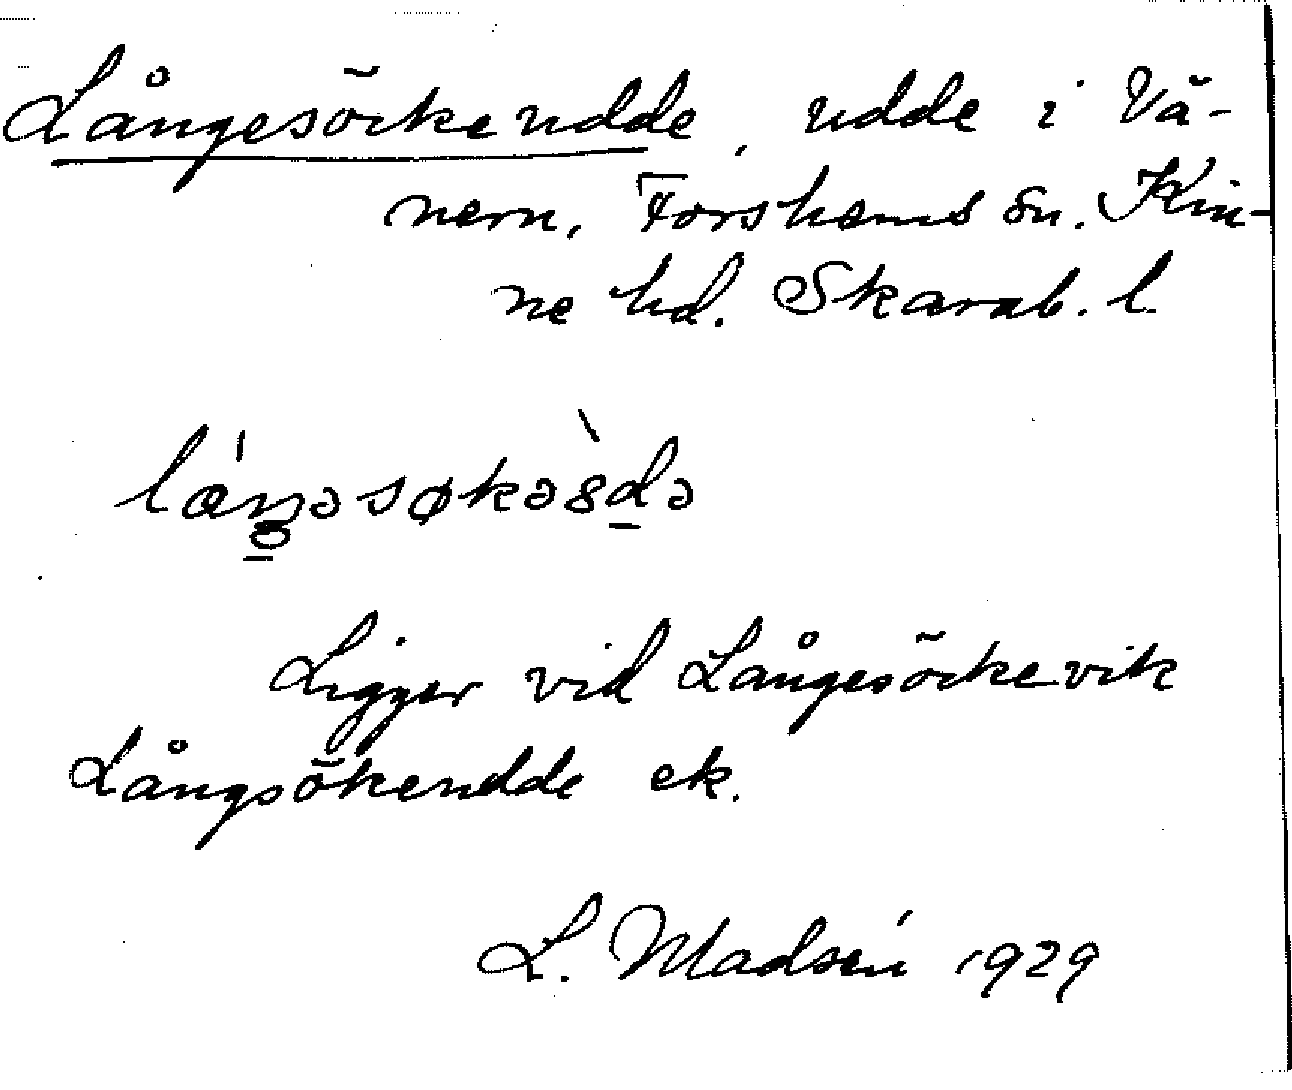 Långesörkeudde, udde i Vä-
nern, Forshems sn. Kin-
ne hd. Skarab. l.
Ligger vid Långesörkevik
Långsökeudde ek.
L. Madsén 1929